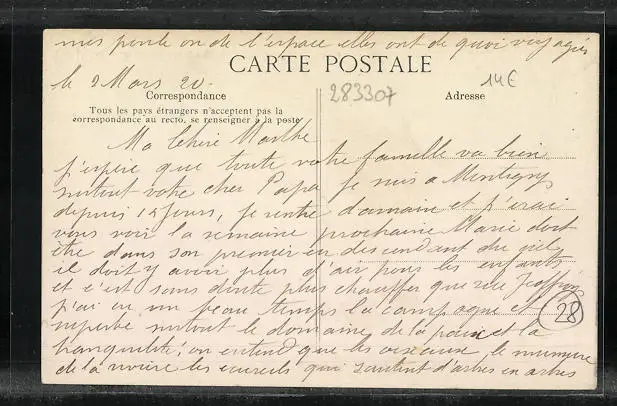 mes poule on de l'espace elles ont de quoi voyager
CARTE POSTALE
le 2 Mars 20.
14€
283307
Correspondance
Adresse
Tous les pays étrangers n'acceptent pas la
correspondance au recto, se renseigner à la poste
Ma Chère Marthe
j'espère que toute votre famille va bien
surtout votre cher Papa je suis a Montigny
depuis 15 jours, je rentre demain et j'irai
vous voir la semaine prochaine Marie doit
être dans son premier en descendant du ciel
il doit y avoir plus d'air pour les enfants
et c'est sans doute plus chauffer que rue
j'ai eu un beau temps la campagne est
28
superbe surtout le domaine de la paix et la
tranquilité, on entend que les oiseaux, le murmure
de la rivière les écureuils qui sautent d'arbres en arbres